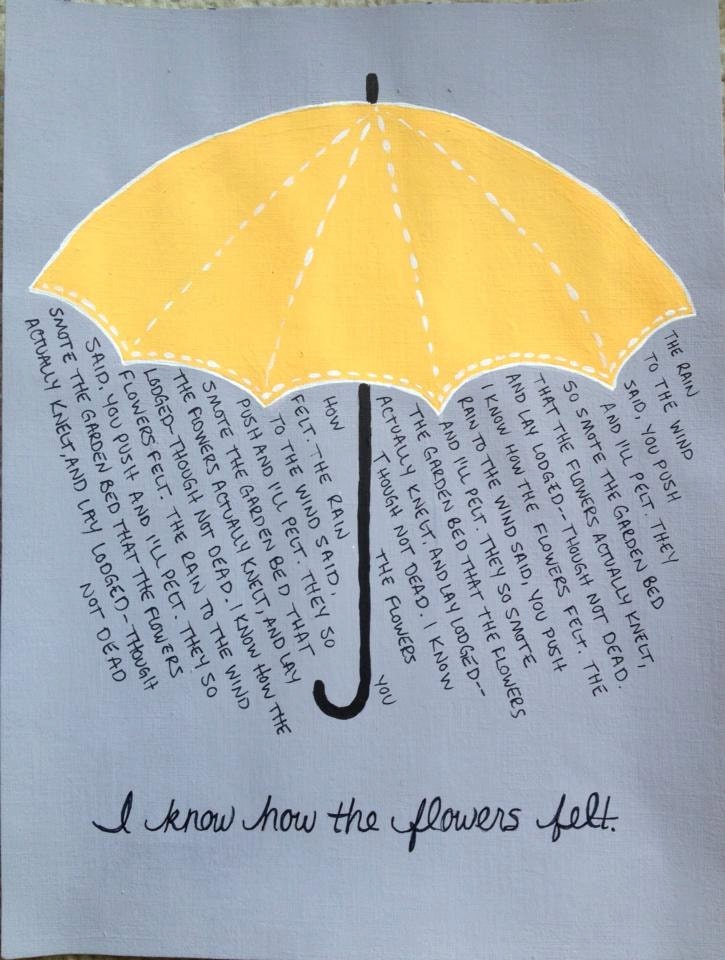 THE RAIN
TO THE WIND
SAID, YOU PUSH
AND I'LL PELT. THEY
SO SMOTE THE GARDEN BED
THAT THE FLOWERS ACTUALLY KNELT,
AND LAY LODGED--THOUGH NOT DEAD.
I KNOW HOW THE FLOWERS FELT. THE
RAIN TO THE WIND SAID, YOU PUSH
AND I'LL PELT. THEY SO SMOTE
THE GARDEN BED THAT THE FLOWERS
ACTUALLY KNELT. AND LAY LODGED--
THOUGH NOT DEAD. I KNOW
HOW THE FLOWERS
FELT. THE RAIN
TO THE WIND SAID, YOU
PUSH AND I'LL PELT. THEY SO
SMOTE THE GARDEN BED THAT
THE FLOWERS ACTUALLY KNELT, AND LAY
LODGED-THOUGH NOT DEAD. I KNOW HOW THE
FLOWERS FELT. THE RAIN TO THE WIND
SAID, YOU PUSH AND I'LL PELT. THEY SO
SMOTE THE GARDEN BED THAT THE FLOWERS
ACTUALLY KNELT, AND LAY LODGED-THOUGH
NOT DEAD
I know how the flowers felt.